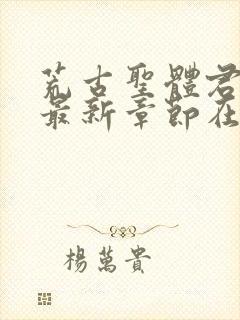 荒古聖體君
最新章節在
楊萬貴